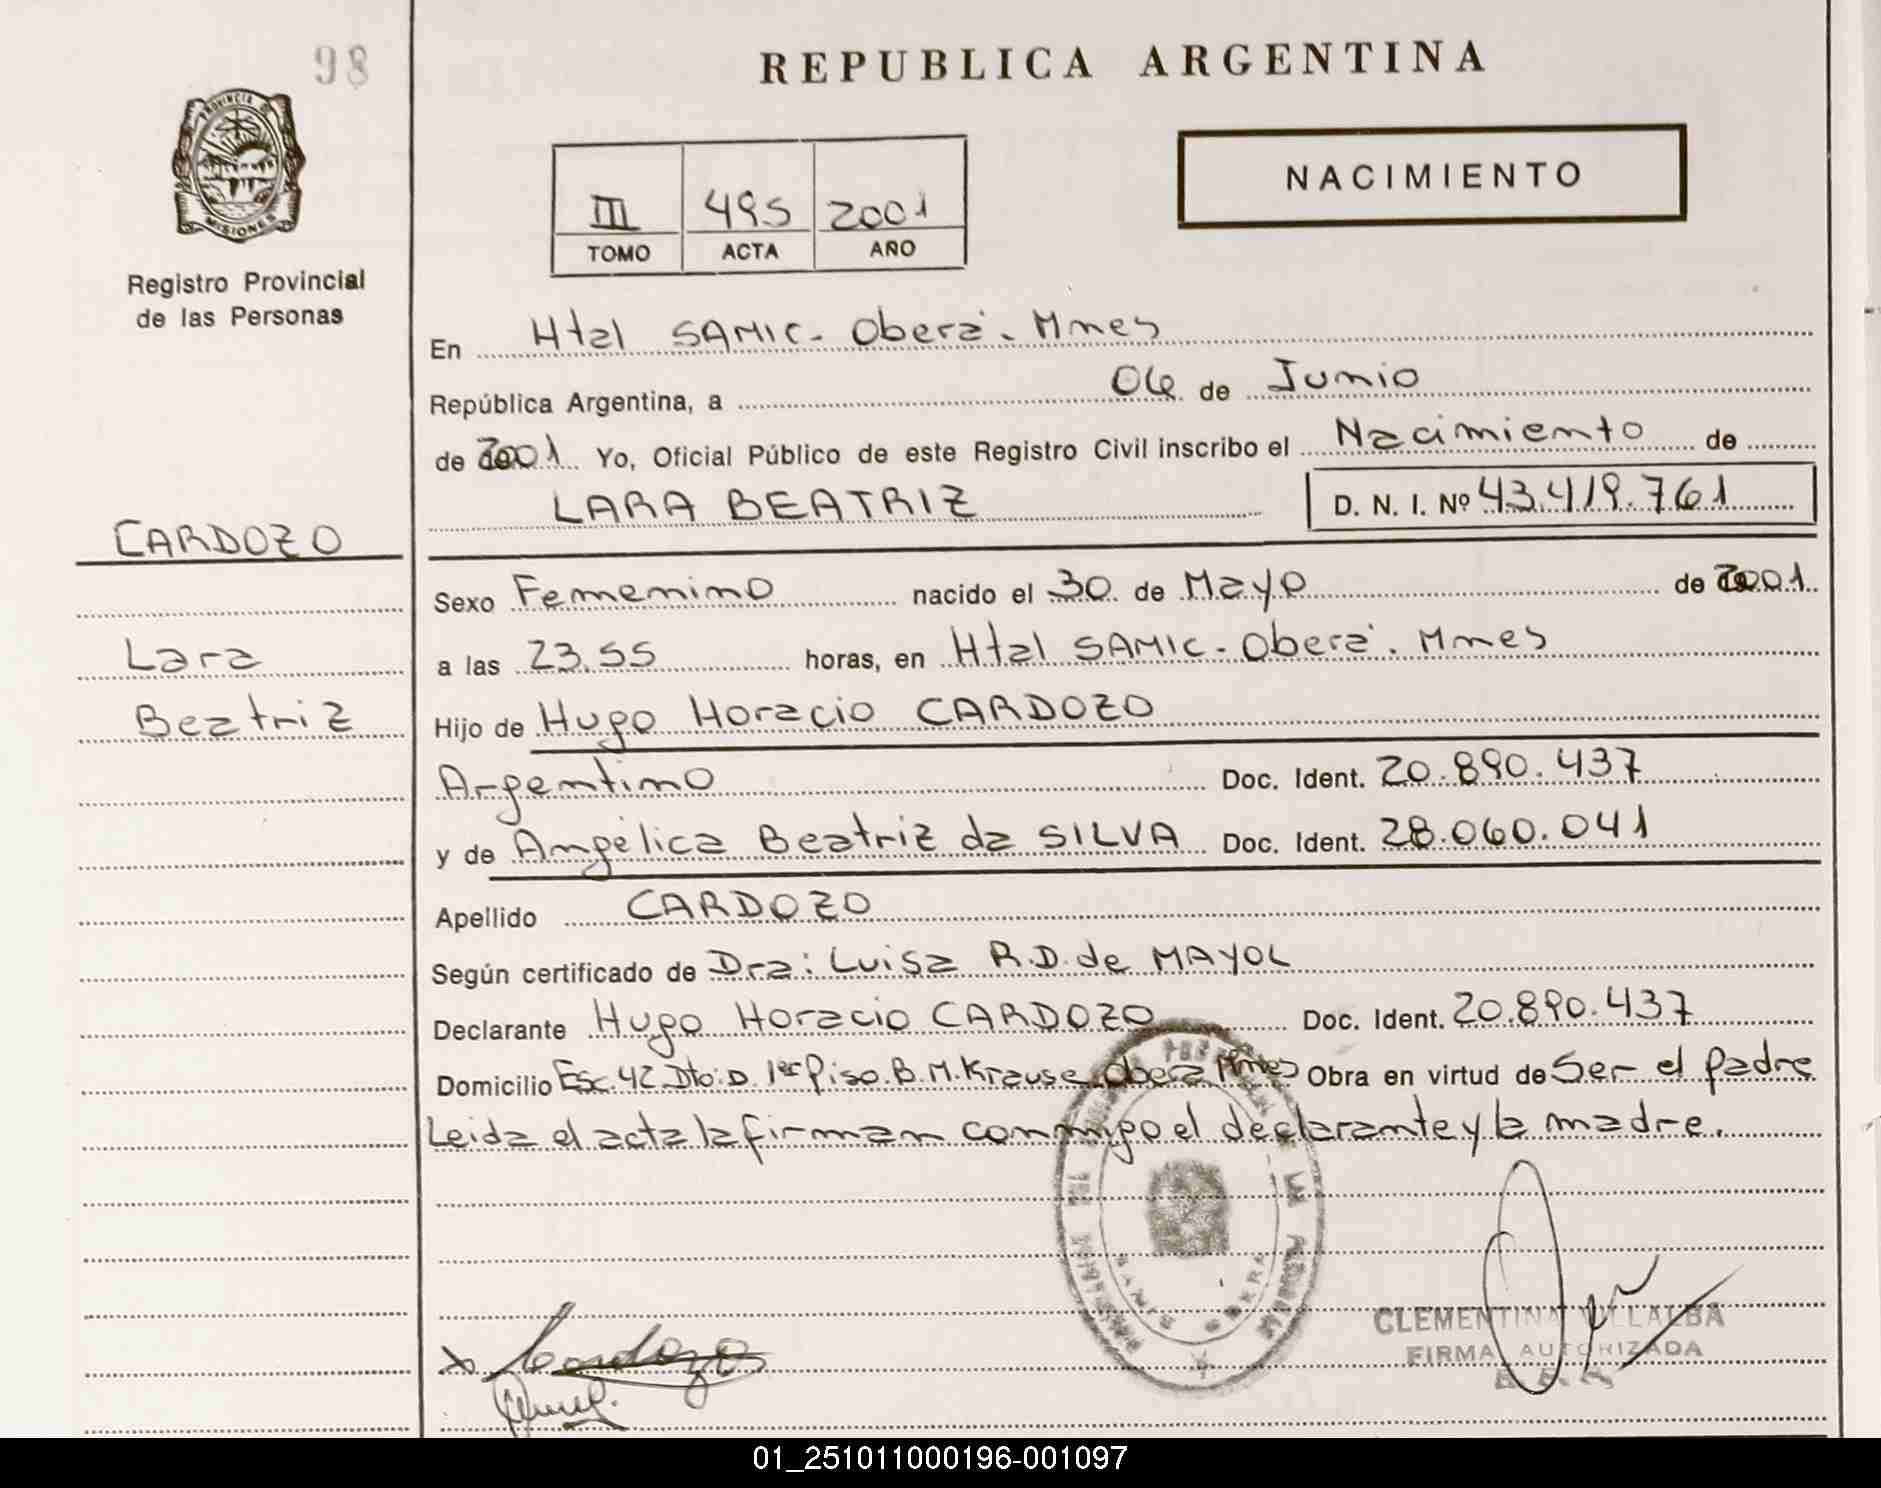 98
REPUBLICA ARGENTINA
PROVINCIA DE
MISIONES
NACIMIENTO
III 495 2001
TOMO ACTA AÑO
Registro Provincial
de las Personas
En Htal SAMIC - Oberá - Mnes
República Argentina, a 04 de Junio
de 2001. Yo, Oficial Público de este Registro Civil inscribo el Nacimiento de
LARA BEATRIZ D. N. I. Nº 43.419.761
CARDOZO
Sexo Femenino nacido el 30 de Mayo de 2001.
Lara
a las 23.55 horas, en Htal SAMIC - Oberá - Mnes
Beatriz
Hijo de Hugo Horacio CARDOZO
Argentino Doc. Ident. 20.890.437
y de Angélica Beatriz da SILVA Doc. Ident. 28.060.041
Apellido CARDOZO
Según certificado de Dra: Luisa R.D. de MAYOL
Declarante Hugo Horacio CARDOZO Doc. Ident. 20.890.437
Domicilio Esc. 42 Dto: D. 1er Piso. B. M. Krause Oberá Mnes Obra en virtud de Ser el padre
Leida el acta la firman conmigo el declarante y la madre.
Cardozo
CLEMENTINA VILLALBA
FIRMA AUTORIZADA
01_251011000196-001097